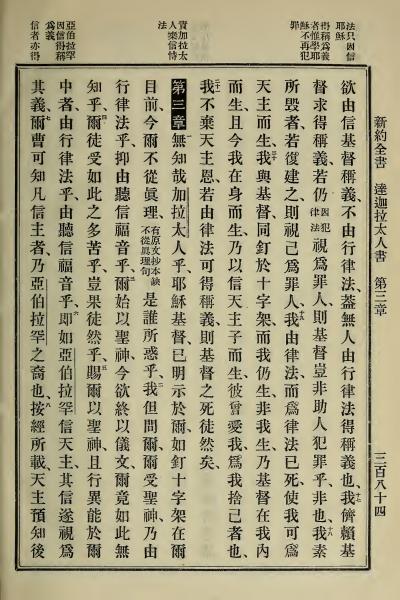 法只因信
耶穌
得稱爲義
者惟學耶
穌不再犯
罪
責加拉太
人棄信恃
法
亞伯拉罕
因信得稱
爲義
信者亦得
新約全書 達迦拉太人書 第三章 三百八十四
欲由信基督稱義、不由行律法、蓋無人由行律法得稱義也、十七我儕賴基
督求得稱義、若仍因犯律法視爲罪人、則基督豈非助人犯罪乎、非也、十八我素
所毀者、若復建之、則視己爲罪人、十九我由律法而爲律法已死、使我可爲
天主而生、二十我與基督同釘於十字架、而我仍生、非我生、乃基督在我內
而生、且今我在身而生、乃以信天主子而生、彼曾愛我、爲我捨己者也、
二十一我不棄天主恩、若由律法可得稱義、則基督之死徒然矣、
第三章 一無知哉加拉太人乎、耶穌基督已明示於爾、如釘十字架在爾
目前、今爾不從眞理、有原文抄本缺不從眞理句是誰所惑乎、二我但問爾、爾受聖神、乃由
行律法乎、抑由聽信福音乎、三爾始以聖神、今欲終以儀文、爾竟如此無
知乎、四爾徒受如此之多苦乎、豈果徒然乎、五賜爾以聖神、且行異能於爾
中者、由行律法乎、由聽信福音乎、六即如亞伯拉罕信天主、其信遂視爲
其義、七爾曹可知凡信主者、乃亞伯拉罕之裔也、八按經所載、天主預知後